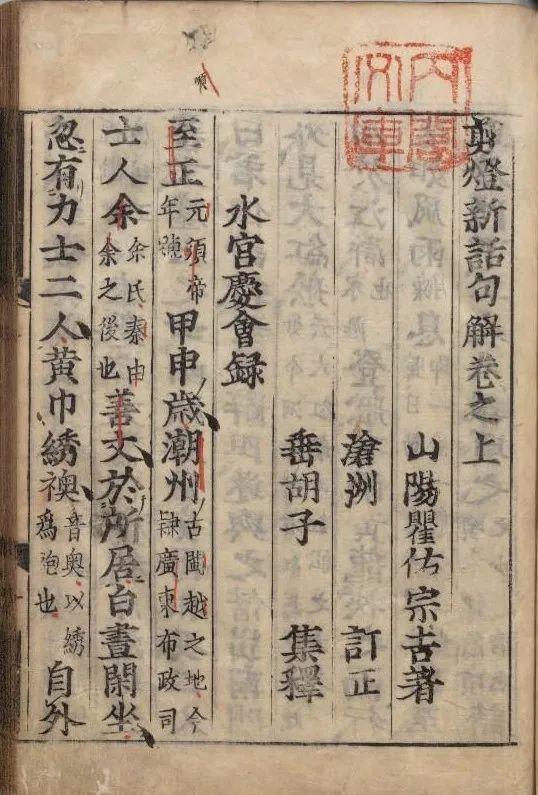 剪燈新話句解卷之上
山陽瞿佑宗吉著
滄洲 訂正
垂胡子 集釋
水宮慶會錄
至正元順帝年號甲申歲潮州古閩越之地今隸廣東布政司
士人余余氏秦由余之後也善文於所居白晝閑坐
忽有力士二人黄巾綉襖音奧以綉爲袍也自外
內閣文庫